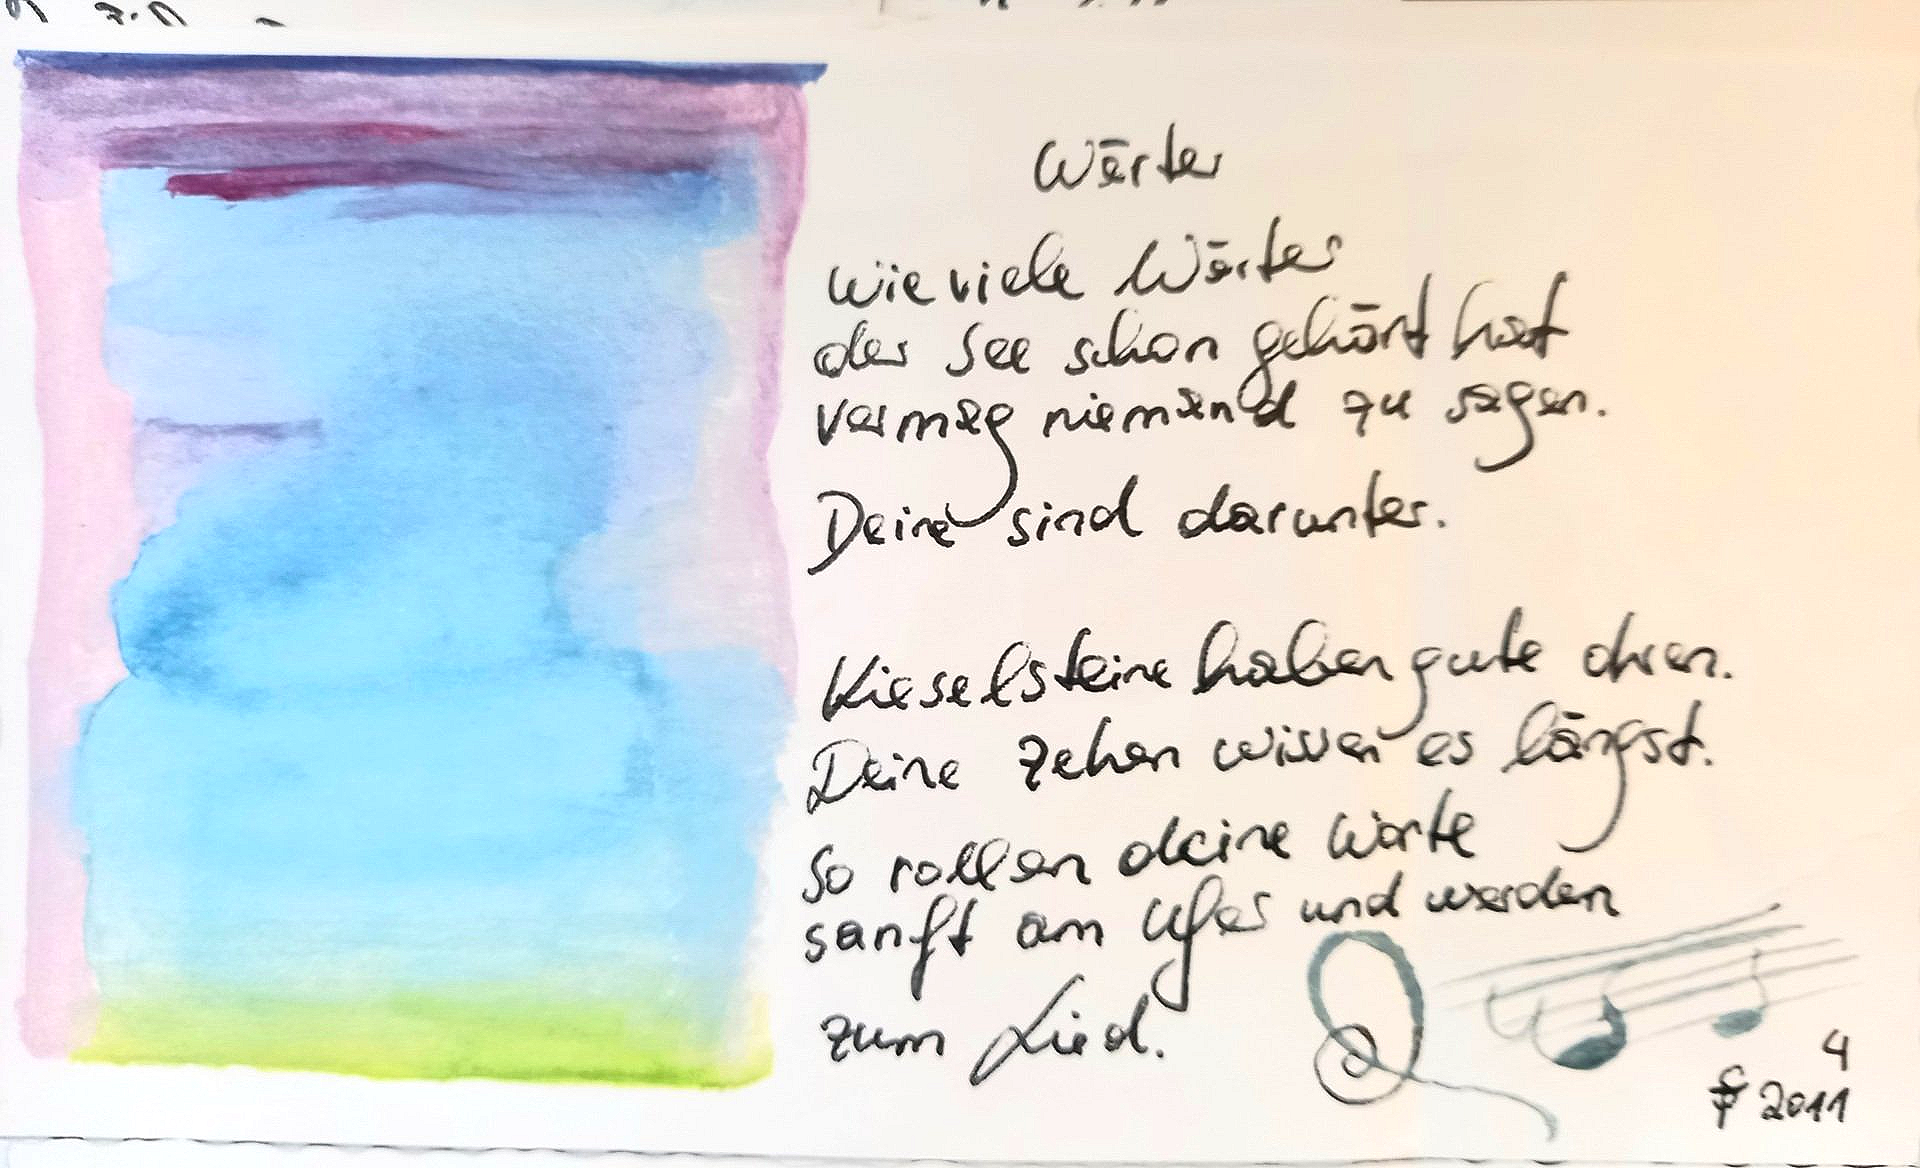 Wörter
Wie viele Wörter
der See schon gehört hat
vermag niemand zu sagen.
Deine sind darunter.
Kieselsteine haben gute Ohren.
Deine Zehen wissen es längst.
So rollen deine Worte
sanft am Ufer und werden
zum Lied.
4
2011